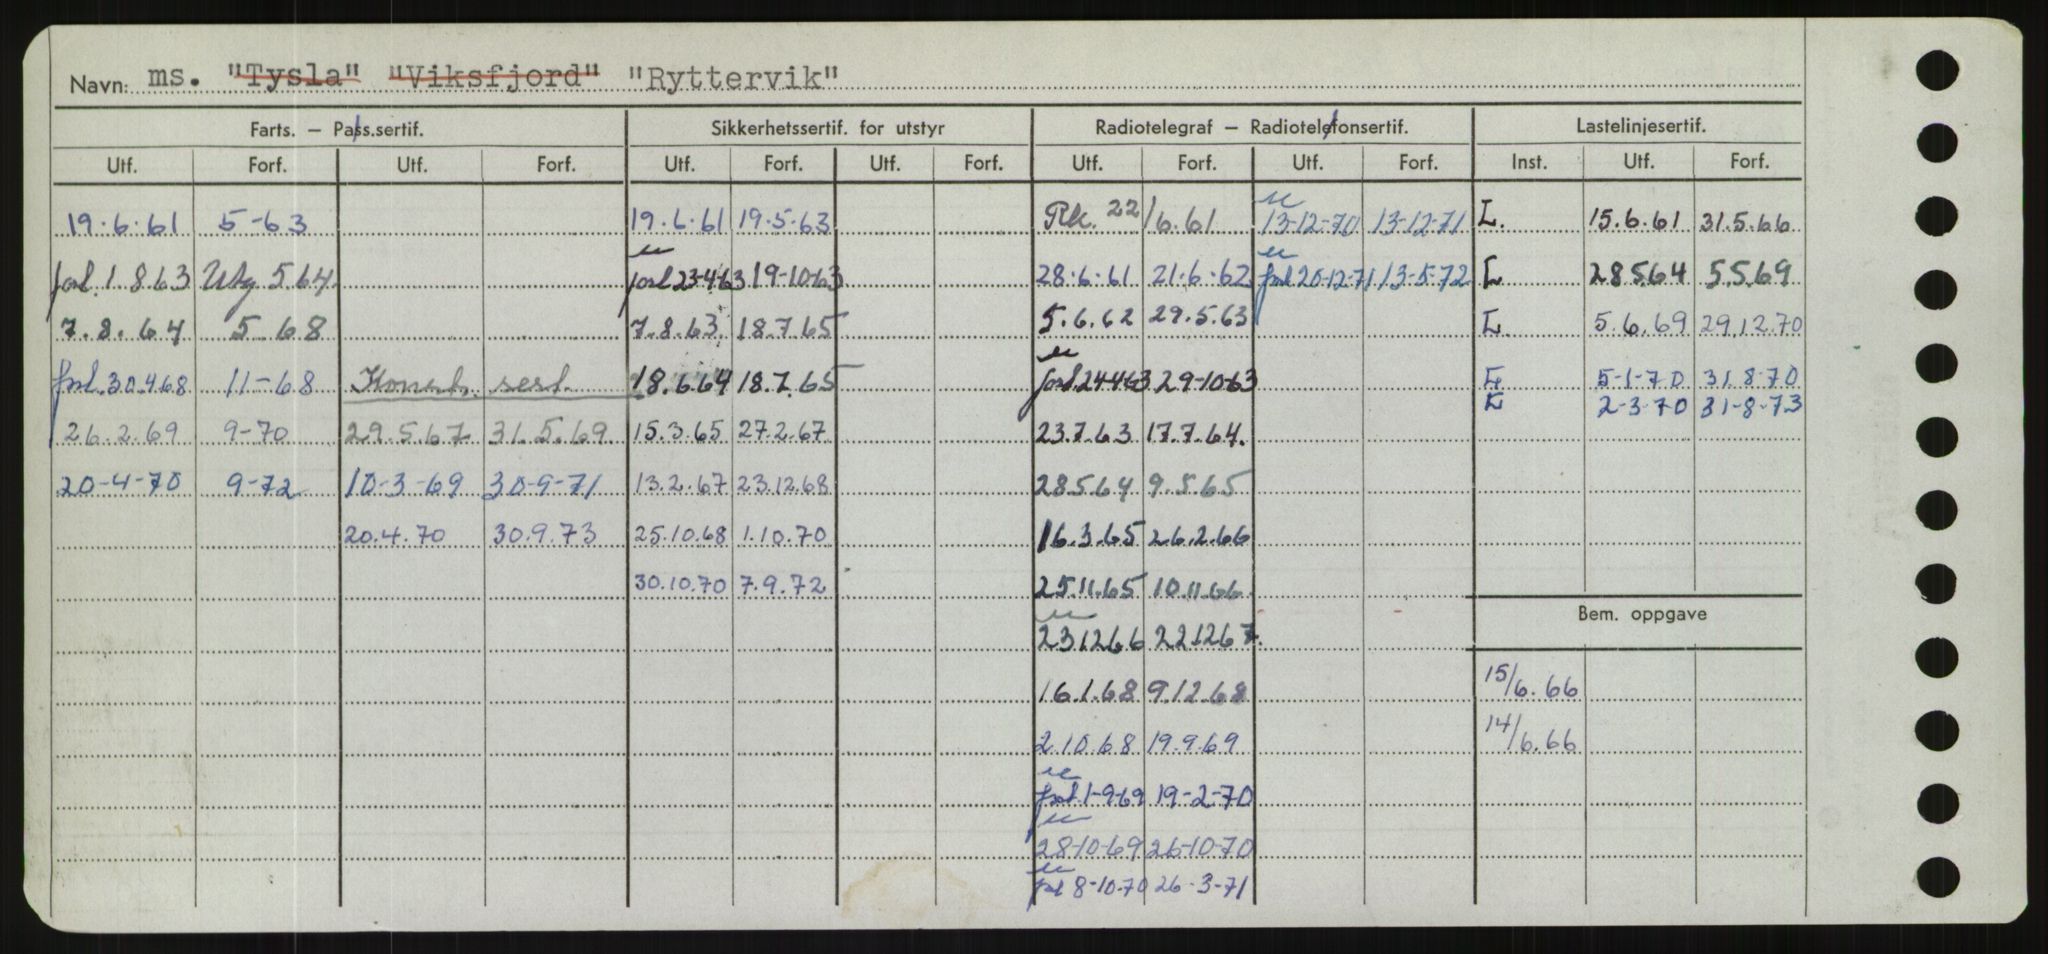 Navn: ms. "Tysla" "Viksfjord" "Ryttervik"
Farts. – Pass.sertif. Sikkerhetssertif. for utstyr Radiotelegraf – Radiotelefonsertif. Lastelinjesertif.
Utf. Forf. Utf. Forf. Utf. Forf. Utf. Forf. Utf. Forf. Utf. Forf. Inst. Utf. Forf.
19.6.61 5-63 19.6.61 19.5.63 Rk. 22/6.61 13-12-70 13-12-71 L. 15.6.61 31.5.66
forl. 1.8.63 Utg 5 64 forl 23-4-63 19-10-63 28.6.61 21.6.62 forl 20-12-71 13-5-72 L 28.5.64 5.5.69
7.8.64 5.68 7.8.63 18.7.65 5.6.62 29.5.63 L. 5.6.69 29.12.70
forl. 30.4.68 11-68 Konstr. sert. 18.6.64 18.7.65 forl. 24-4-63 29-10-63 L 5-1-70 31.8-70
L 2-3-70 31-8-73
26.2.69 9-70 29.5.67 31.5.69 15.3.65 27.2.67 23.7.63 17.7.64.
20-4-70 9-72 10-3-69 30-9-71 13.2.67 23.12.68 28.5.64 9.5.65
20.4.70 30.9.73 25.10.68 1.10.70 16.3.65 26.2.66
30.10.70 7.9.72 25.11.65 10.11.66
Bem. oppgave
23.12.66 22.12.67.
15/6.66
16.1.68 9.12.68
14/6.66
2.10.68 19.9.69
forl. 1-9-69 19-2-70
28-10-69 26-10-70
forl 8-10-70 26-3-71